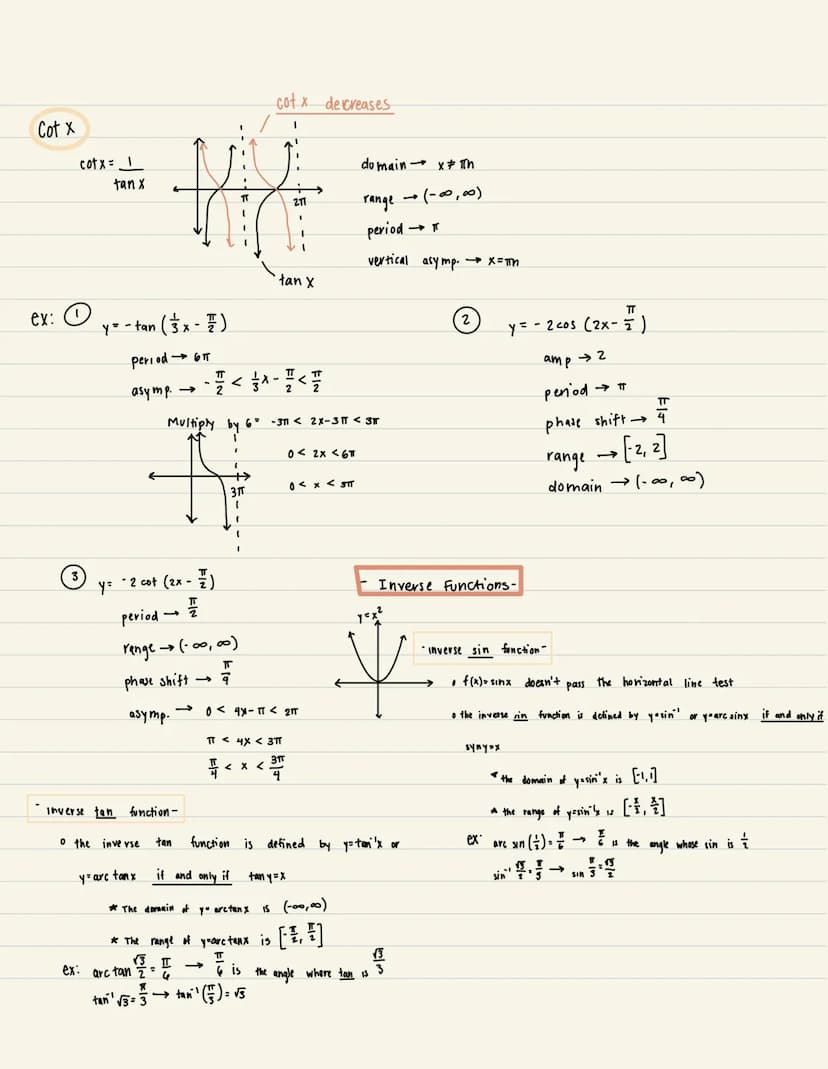 cot x decreases
Cot x
cot x = 1/tan x
π
2π
tan x
domain → x ≠ πn
range → (-∞, ∞)
period → π
vertical asymp. → x = πn
ex: ① y = - tan (1/3 x - π/2)
period → 6π
asymp. → -π/2 < 1/3 x - π/2 < π/2
Multiply by 6 = -3π < 2x - 3π < 3π
0 < 2x < 6π
0 < x < 3π
3π
② y = - 2 cos (2x - π/2)
amp → 2
period → π
phase shift → π/4
range → [-2, 2]
domain → (-∞, ∞)
③ y = -2 cot (2x - π/2)
period → π/2
range → (-∞, ∞)
phase shift → π/4
asymp. → 0 < 4x - π < 2π
π < 4x < 3π
π/4 < x < 3π/4
- Inverse Functions -
y = x²
- inverse sin function -
f(x) = sinx doesn't pass the horizontal line test
the inverse sin function is defined by y = sin⁻¹ or y = arc sinx if and only if
siny = x
* the domain of y = sin⁻¹x is [-1, 1]
* the range of y = sin⁻¹x is [-π/2, π/2]
ex: arc sin (1/2) = π/6 → π/6 is the angle whose sin is 1/2
sin⁻¹ √3/2 = π/3 → sin π/3 = √3/2
- inverse tan function -
the inverse tan function is defined by y = tan⁻¹x or
y = arc tanx if and only if tan y = x
* The domain of y = arctanx is (-∞, ∞)
* The range of y = arctanx is [-π/2, π/2]
ex: arc tan √3/2 = π/6 → π/6 is the angle where tan is √3/3
tan⁻¹ √3 = π/3 → tan⁻¹ (π/3) = √3